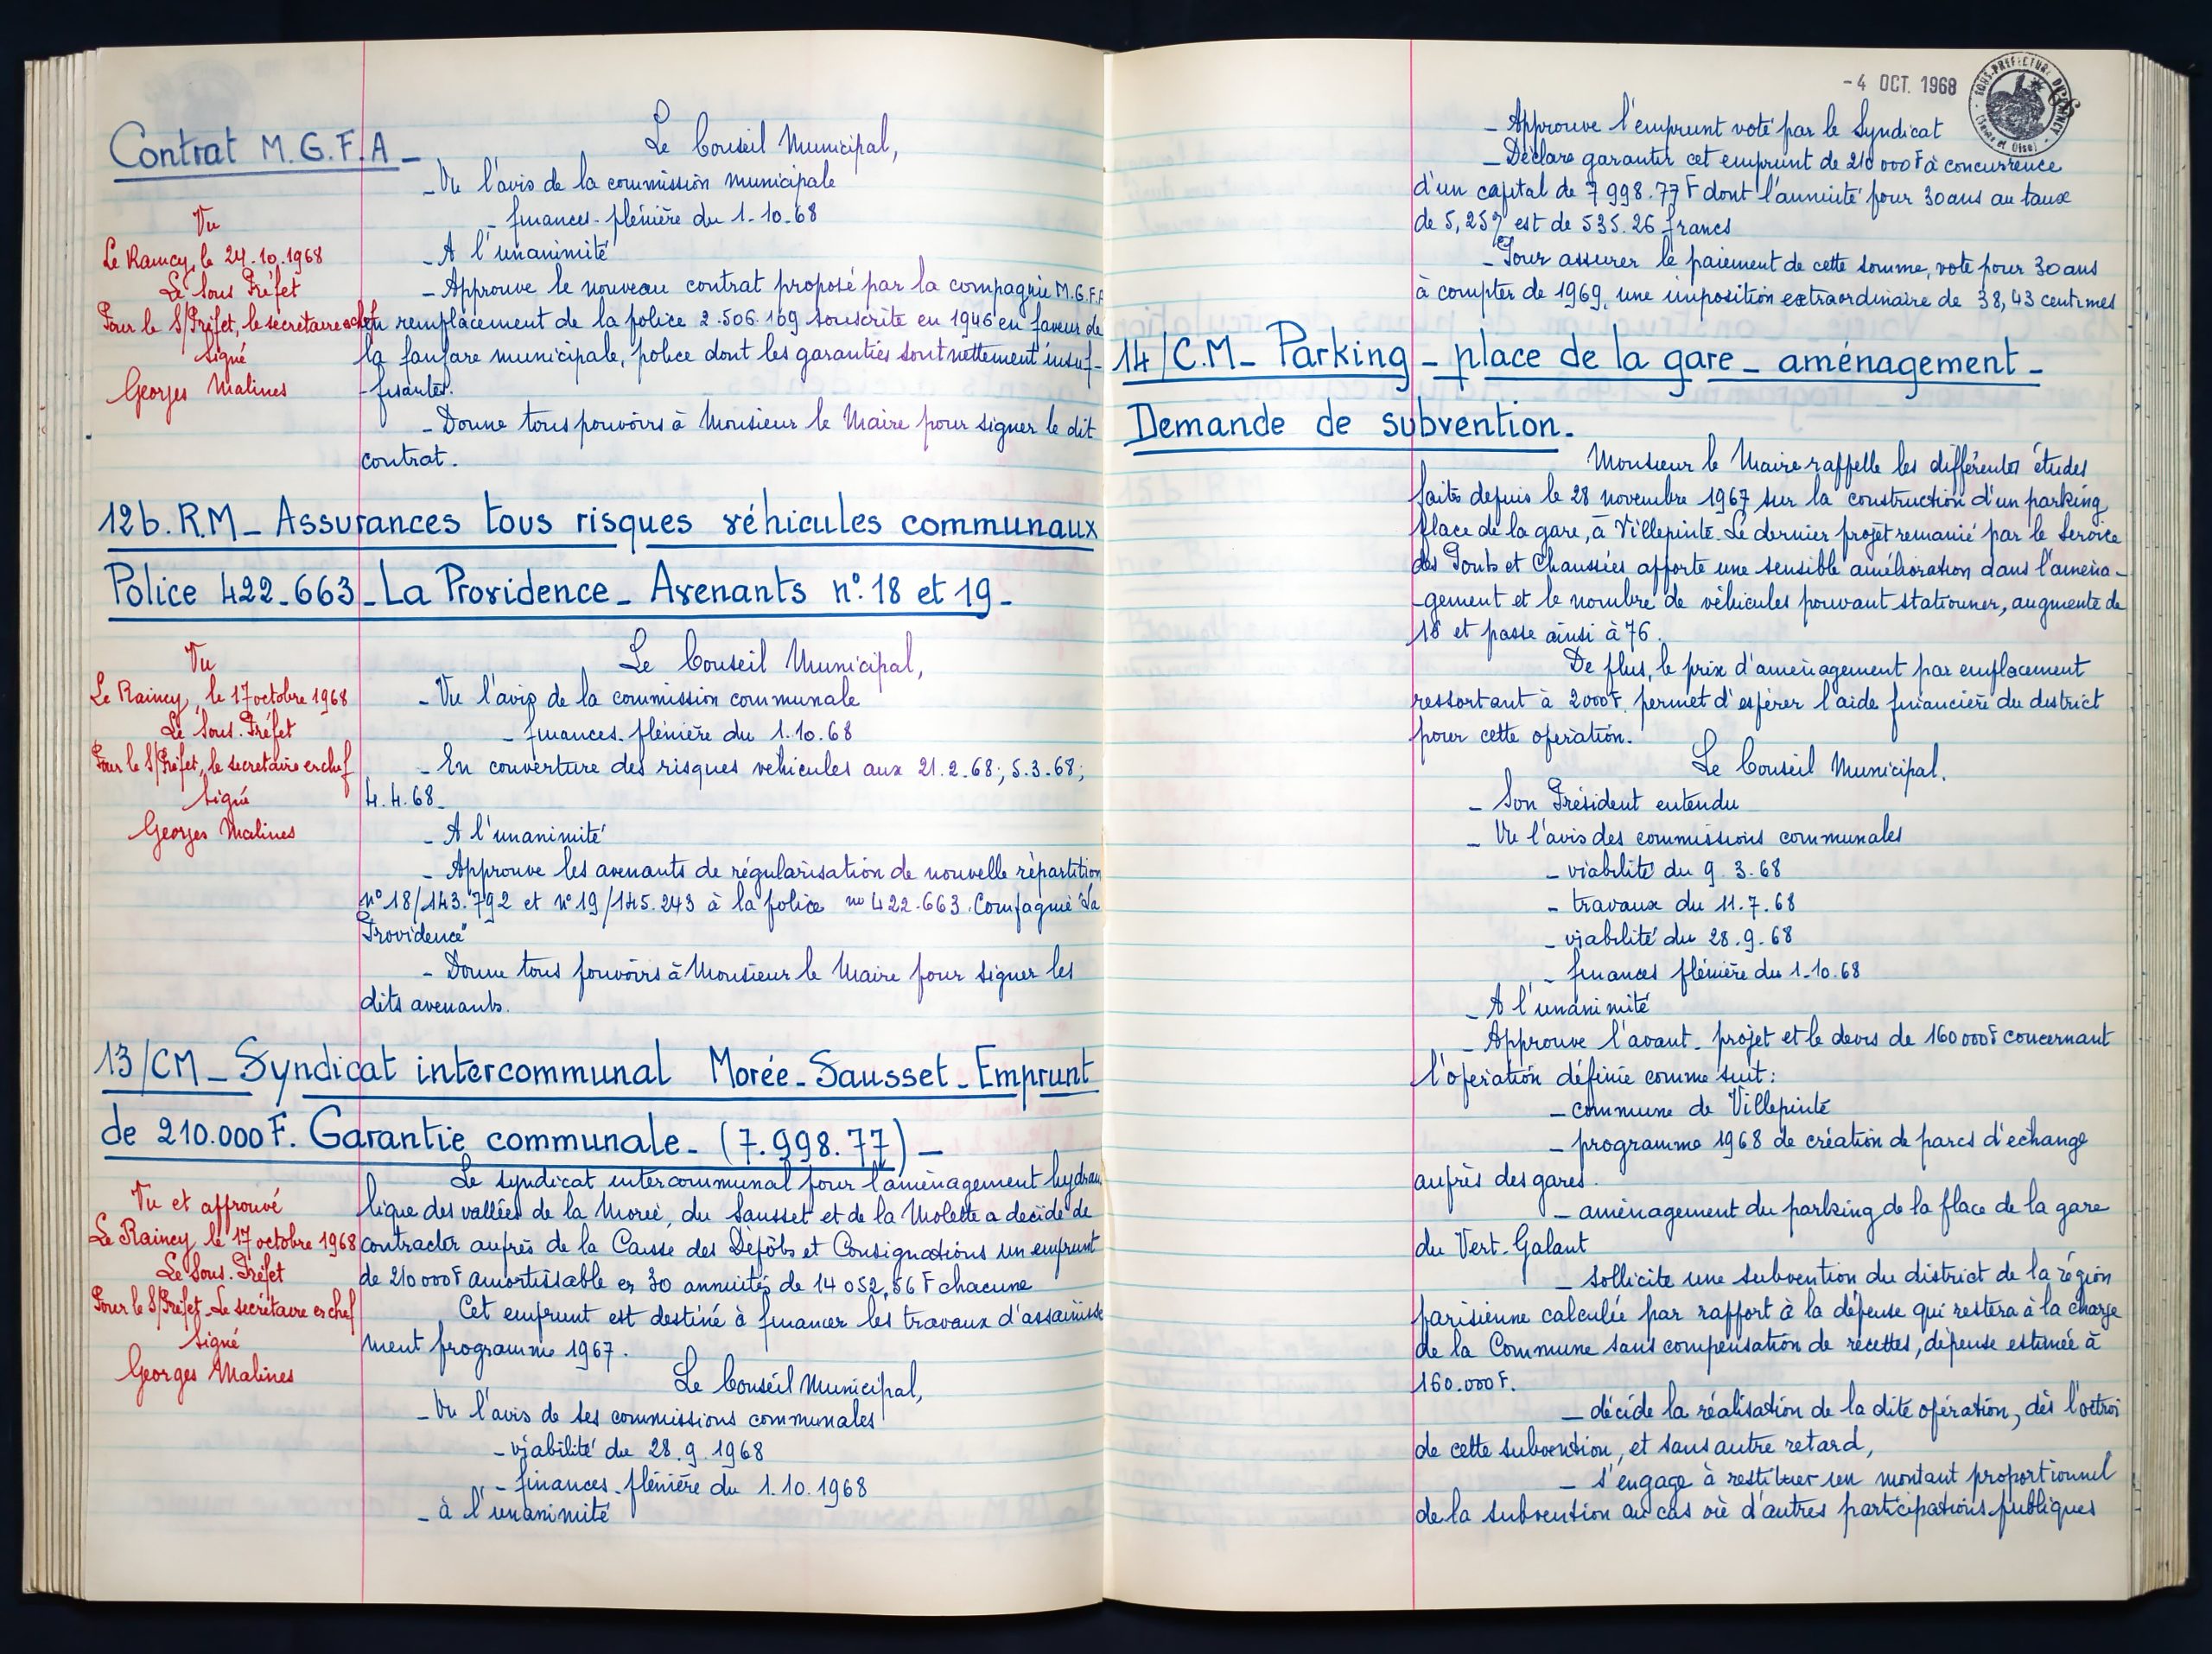 Contrat M.G.F.A -
Le Conseil Municipal,
- Vu l'avis de la commission municipale
- finances - plénière du 1-10-68
- A l'unanimité
- Approuve le nouveau contrat proposé par la compagnie M.G.F.A
en remplacement de la police 2.506.169 souscrite en 1946 en faveur de
la fanfare municipale, police dont les garanties sont nettement insuf-
-fisantes.
- Donne tous pouvoirs à Monsieur le Maire pour signer le dit
contrat.
Vu
Le Raincy, le 24.10.1968
Le Sous Préfet
Pour le S/Préfet, le secrétaire en chef
Signé
Georges Malines
12b. R.M - Assurances tous risques véhicules communaux
Police 422.663 - La Providence - Avenants n°. 18 et 19 -
Le Conseil Municipal,
- Vu l'avis de la commission communale
- finances - plénière du 1.10.68
- En couverture des risques vehicules aux 21.2.68; 5.3.68;
4.4.68.
- A l'unanimité
- Approuve les avenants de régularisation de nouvelle répartition
n° 18/143.792 et n° 19/145.243 à la police no 422.663. Compagnie "La
Providence"
- Donne tous pouvoirs à Monsieur le Maire pour signer les
dits avenants.
Vu
Le Raincy, le 17 octobre 1968
Le Sous. Préfet
Pour le S/Préfet, le secretaire en chef
Signé
Georges Malines
13/CM - Syndicat intercommunal Morée - Sausset - Emprunt
de 210.000 F. Garantie communale - (7.998.77) -
Le syndicat intercommunal pour l'aménagement hydrau
lique des vallées de la Morée, du Sausset et de la Molette a decidé de
contracter auprès de la Caisse des Dépôts et Consignations un emprunt
de 210 000 F amortissable en 30 annuités de 14 052,56 F chacune
Cet emprunt est destiné à financer les travaux d'assainisse
ment programme 1967.
Le Conseil Municipal,
- Vu l'avis de ses commissions communales
- viabilité du 28.9.1968
- finances - plénière du 1.10.1968
- à l'unanimité
Vu et approuvé
Le Raincy le 17 octobre 1968
Le Sous. Préfet
Pour le S/Préfet - Le secrétaire en chef
Signé
Georges Malines
- 4 OCT. 1968
SOUS-PREFECTURE DU RAINCY
(Seine et Oise)
- Approuve l'emprunt voté par le Syndicat
- Déclare garantir cet emprunt de 210 000 F à concurrence
d'un capital de 7 998.77 F dont l'annuité pour 30 ans au taux
de 5,25% est de 535.26 francs
- Pour assurer le paiement de cette somme, vote pour 30 ans
à compter de 1969, une imposition extraordinaire de 38,43 centimes
14/C.M - Parking - place de la gare - aménagement -
Demande de subvention.
Monsieur le Maire rappelle les différentes études
faites depuis le 28 novembre 1967 sur la construction d'un parking
place de la gare, à Villepinte. Le dernier projet remanié par le Service
des Ponts et Chaussées apporte une sensible amélioration dans l'aména-
-gement et le nombre de véhicules pouvant stationner, augmente de
18 et passe ainsi à 76.
De plus, le prix d'aménagement par emplacement
ressortant à 2000 F. permet d'espérer l'aide financière du district
pour cette opération.
Le Conseil Municipal.
- Son Président entendu
- Vu l'avis des commissions communales
- viabilité du 9.3.68
- travaux du 11.7.68
- viabilité du 28.9.68
- finances plénière du 1-10.68
- A l'unanimité
- Approuve l'avant-projet et le devis de 160 000 F concernant
l'opération définie comme suit:
- commune de Villepinte
- programme 1968 de création de parcs d'echange
auprès des gares.
- aménagement du parking de la place de la gare
du Vert-Galant
- sollicite une subvention du district de la région
parisienne calculée par rapport à la dépense qui restera à la charge
de la Commune sans compensation de recettes, dépense estimée à
160.000 F.
- décide la réalisation de la dite opération, dès l'octroi
de cette subvention, et sans autre retard,
- s'engage à restituer un montant proportionnel
de la subvention au cas où d'autres participations publiques